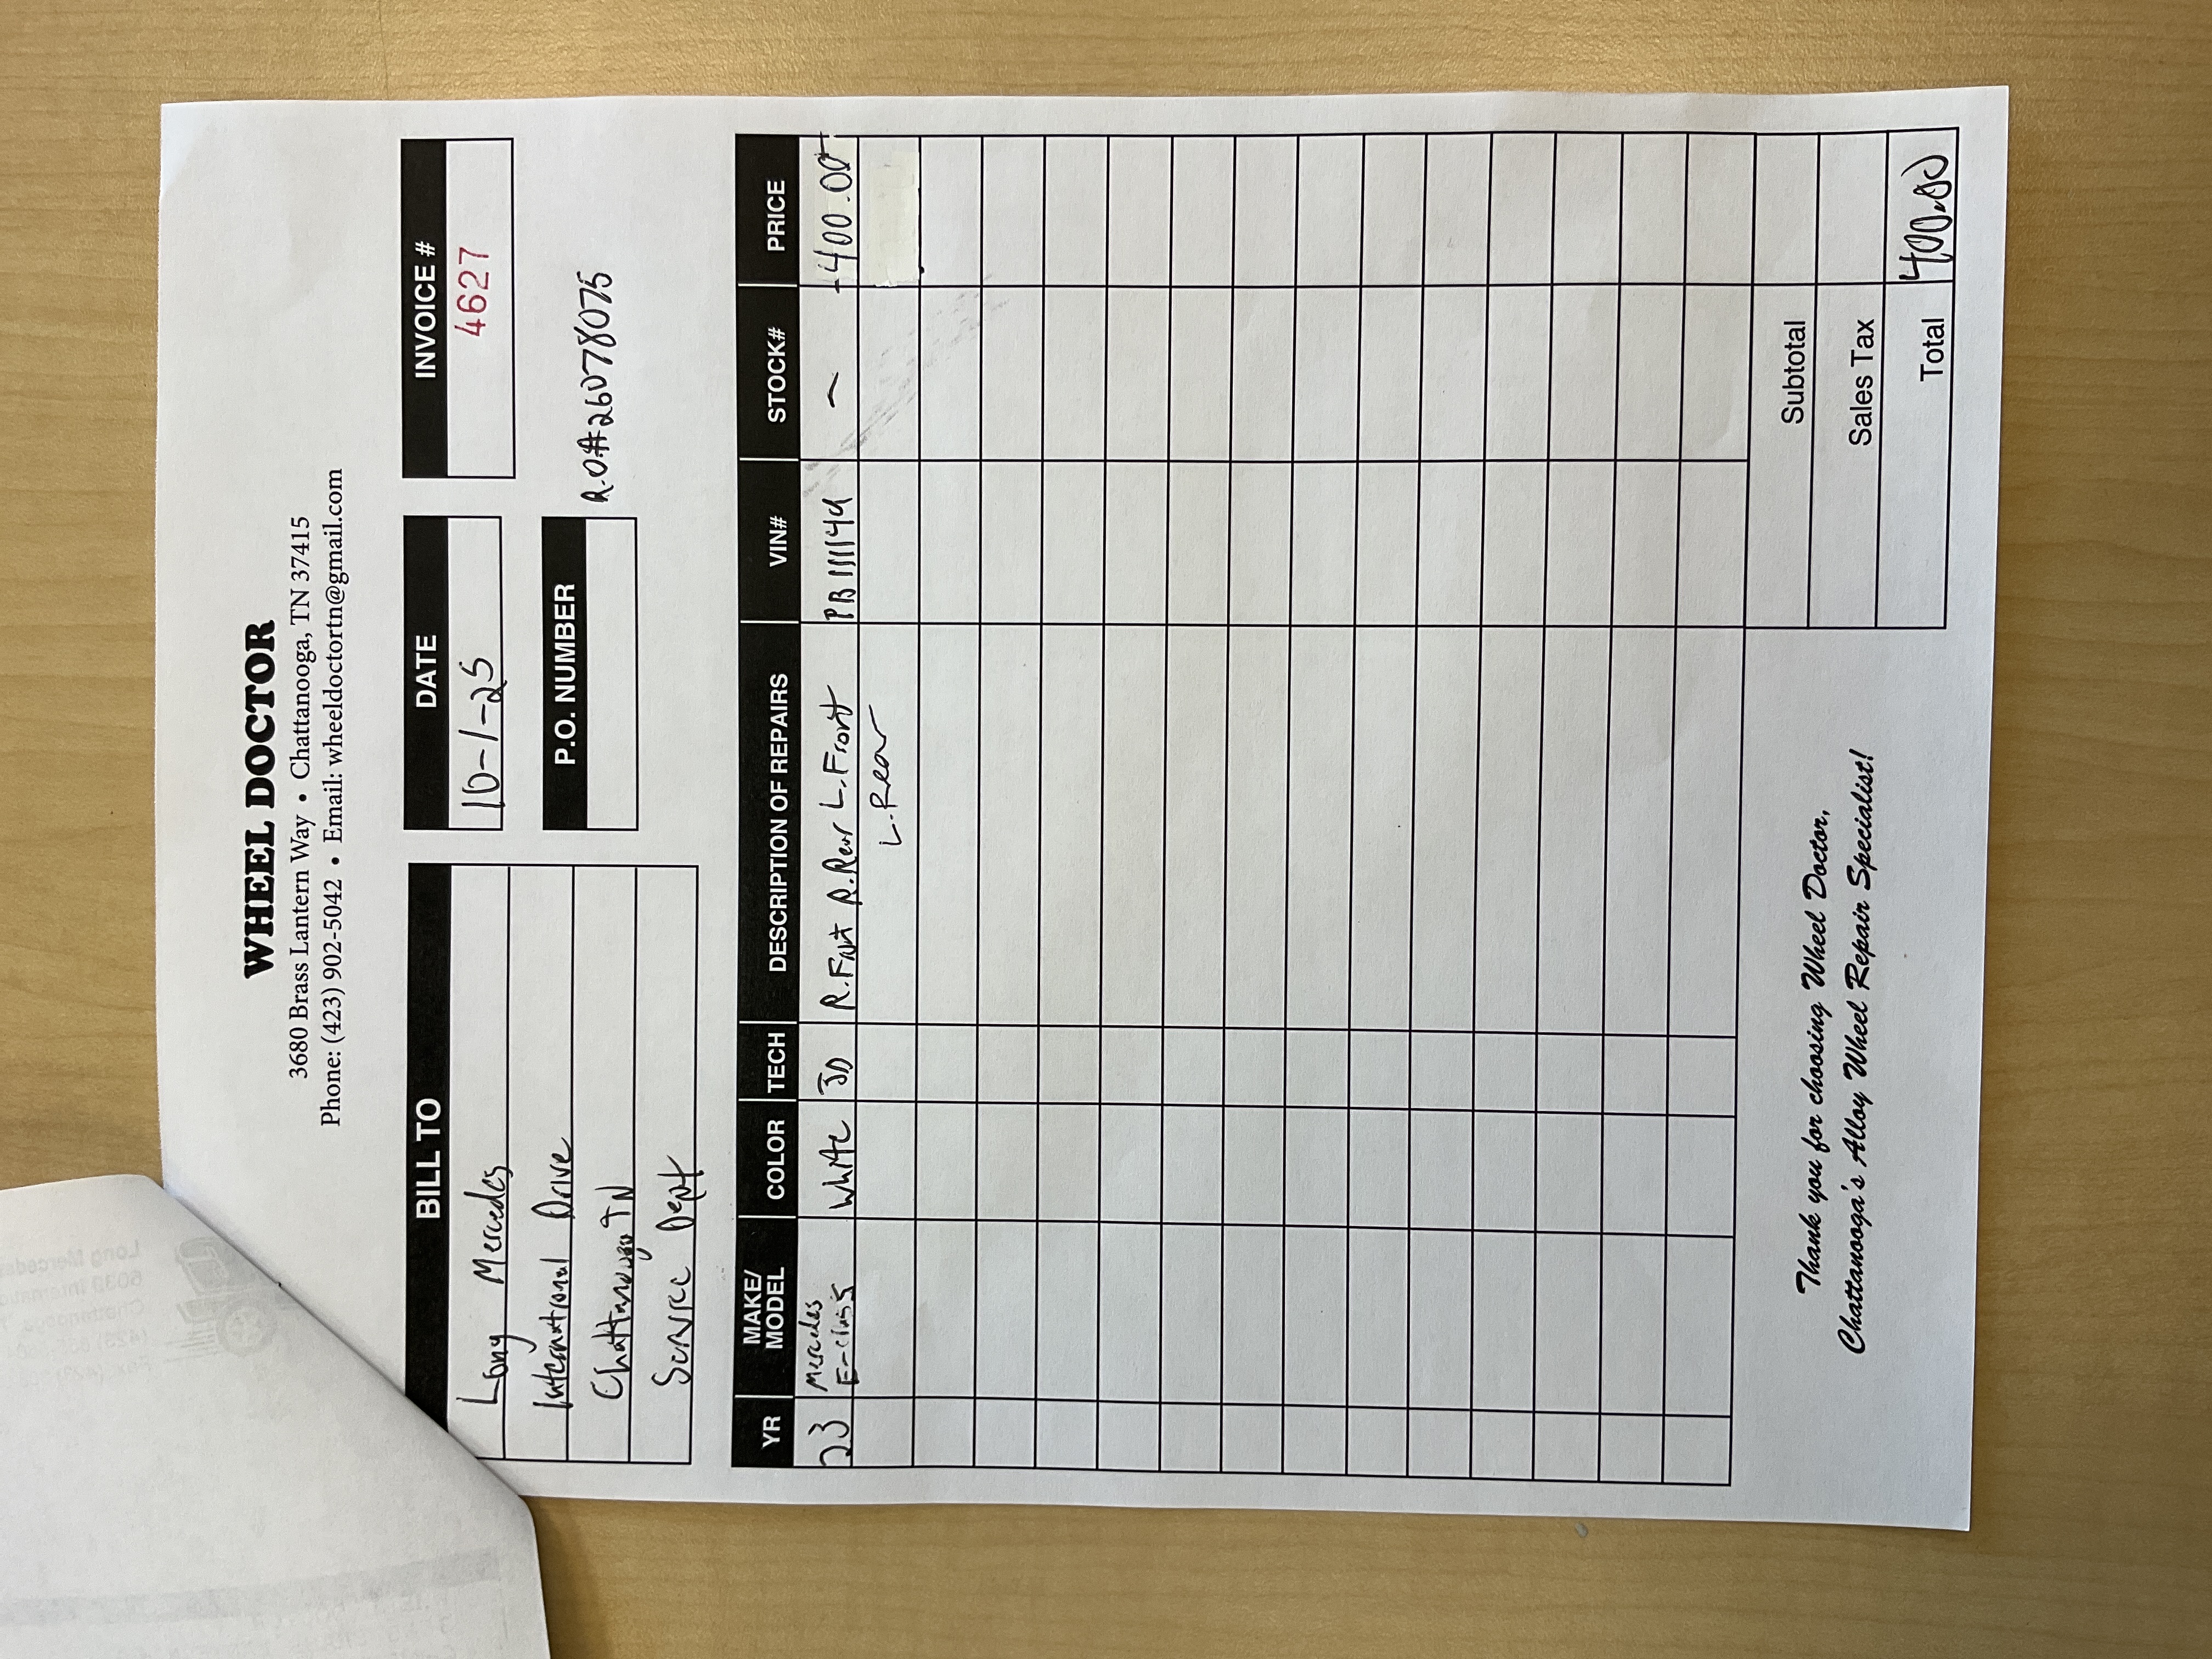 WHEEL DOCTOR
3680 Brass Lantern Way • Chattanooga, TN 37415
Phone: (423) 902-5042 • Email: wheeldoctortn@gmail.com
BILL TO
Long Mercedes
International Drive
Chattanooga TN
Service Dept
DATE
10-1-25
INVOICE #
4627
P.O. NUMBER
R.O# 26078075
YR MAKE/MODEL COLOR TECH DESCRIPTION OF REPAIRS VIN# STOCK# PRICE
23 Mercedes E-class White JD R.Fnt R.Rear L.Front PB111144 — 400.00
L.Rear
Subtotal
Sales Tax
Total 400.00
Thank you for choosing Wheel Doctor,
Chattanooga's Alloy Wheel Repair Specialist!